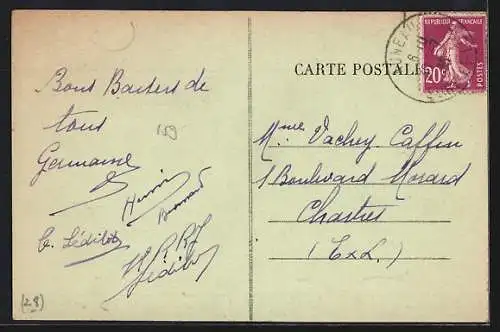 Bons Baisers de
tous
Germaine
159
Henri
G. Lédilot
(28)
CARTE POSTALE
REPUBLIQUE FRANÇAISE
20c
POSTES
Mme Vachey Caffin
1 Boulevard Morard
Chartres
(E&L.)